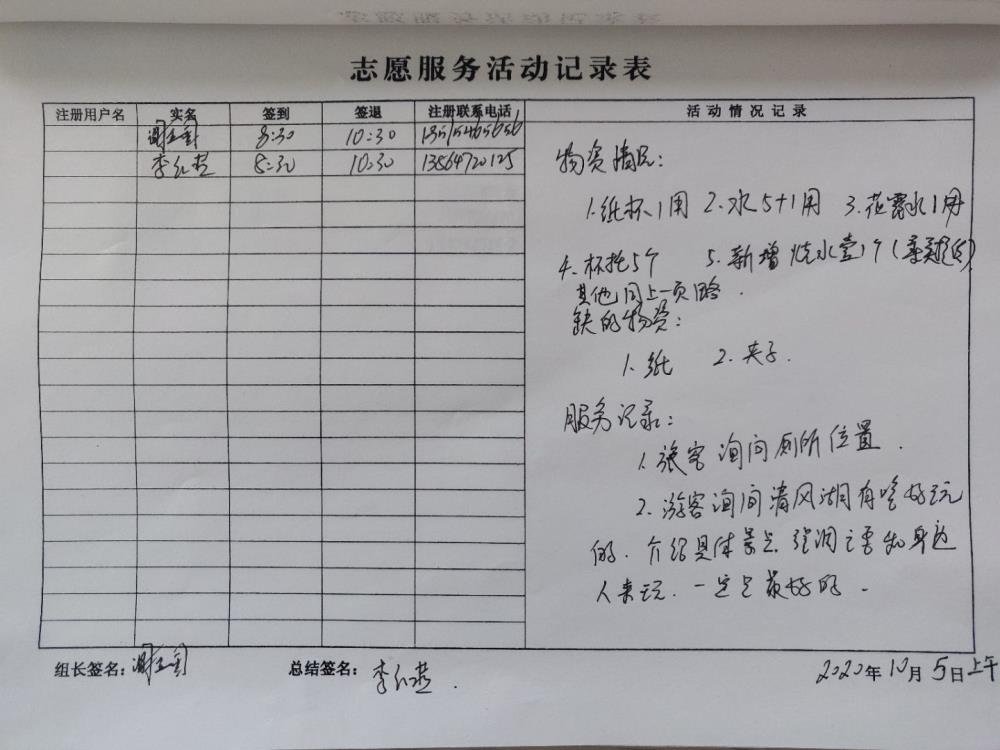 志愿服务活动记录表
注册用户名 实名 签到 签退 注册联系电话 活动情况记录
8:30 10:30
李红燕 8:30 10:30 13864720125
物资情况:
1.纸杯1用 2.水5+1用 3.花露水1用
4.杯托5个 5.新增烧水壶1个
其他同上一页略.
缺的物资:
1.纸 2.夹子.
服务记录:
1.旅客询问厕所位置.
2.游客询问清风湖有啥好玩
的.介绍具体景点.强调主要和身边
人来玩.一定是最好的.
组长签名: 总结签名: 李红燕.
2020年10月5日上午